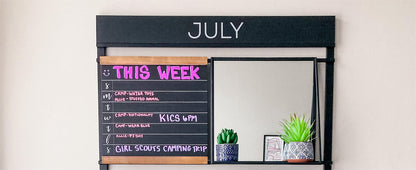 JULY
THIS WEEK
S
M CAMP-WATER TOYS
ALLIE - STUFFED ANIMAL
T
W CAMP-NATIONALITY KICS 6PM
T CAMP-WEAR BLUE
F ALLIE-PJ DAY
S GIRL SCOUTS CAMPING TRIP